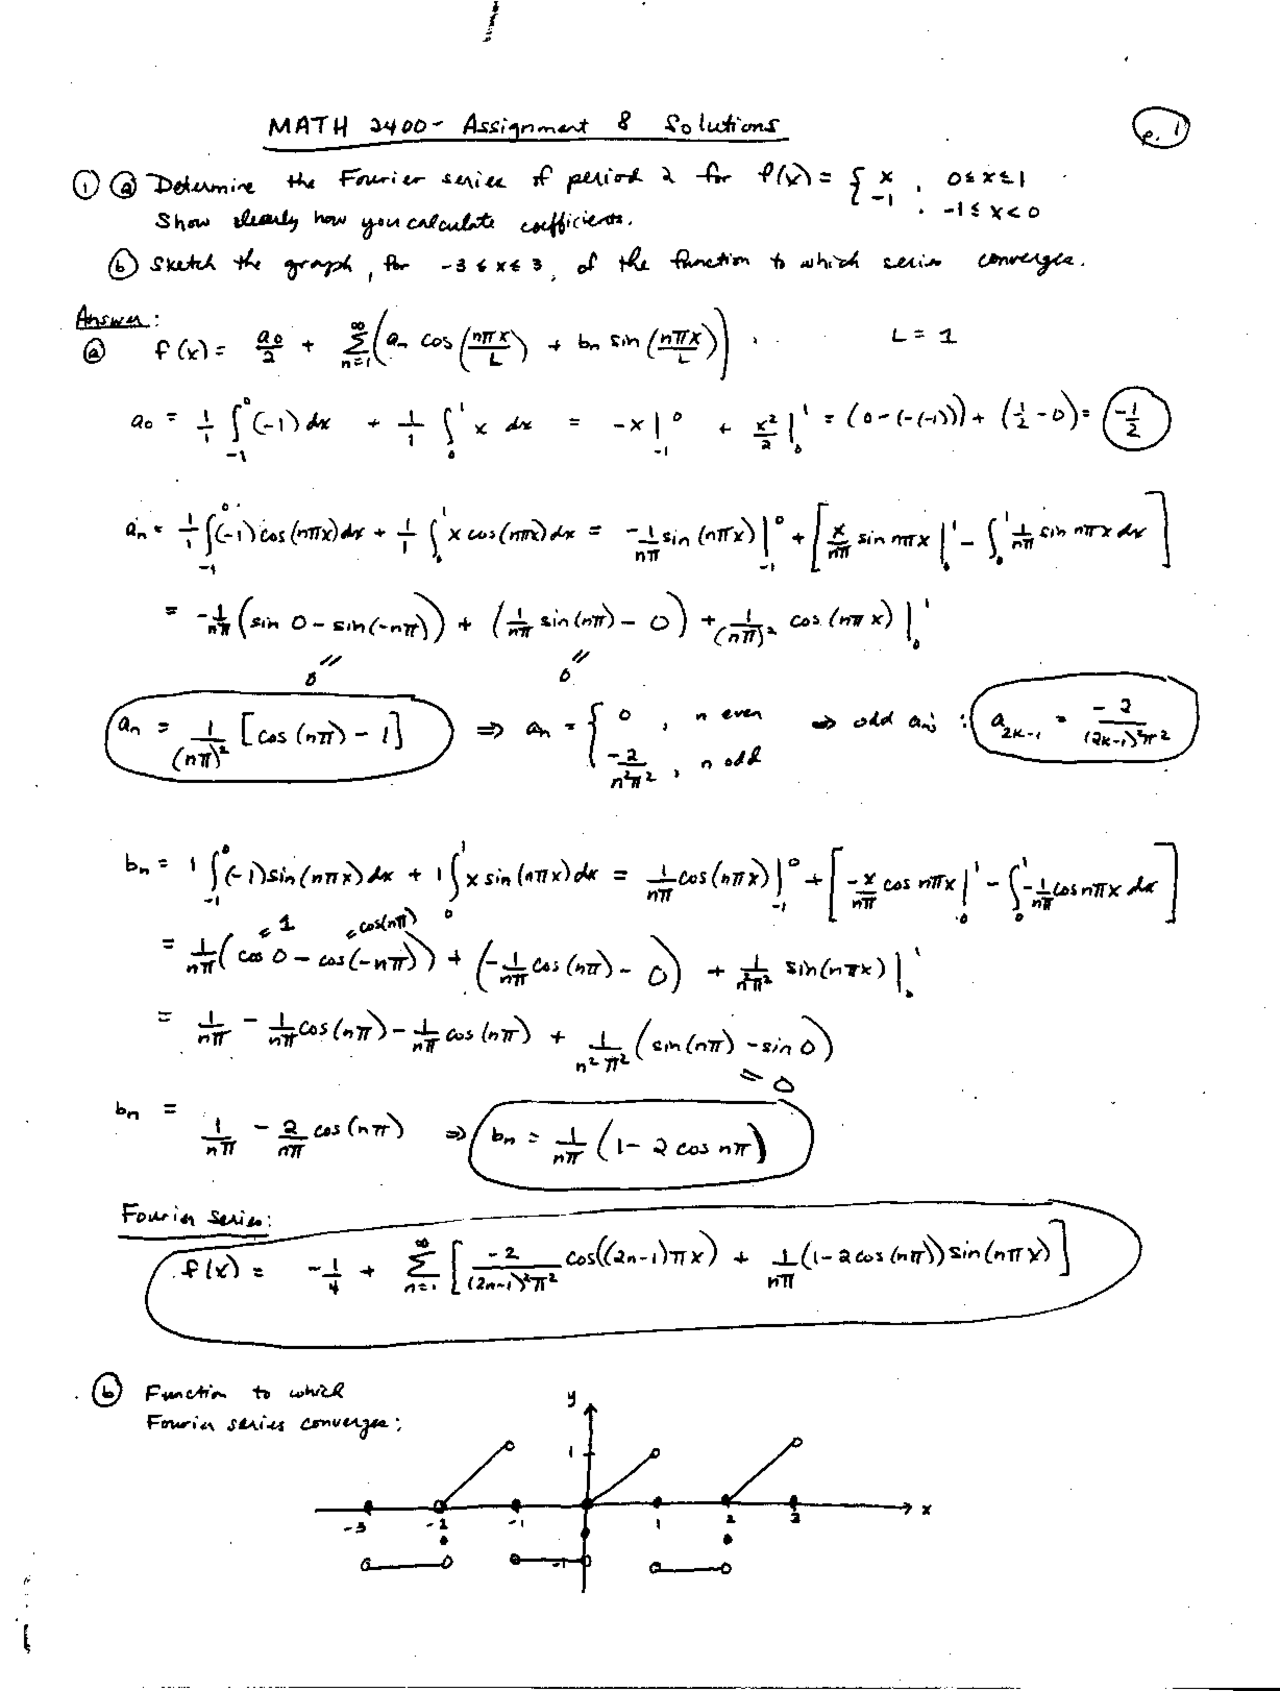 MATH 2400 - Assignment 8 Solutions
p. 1
① ⓐ Determine the Fourier series of period 2 for f(x) = { x , 0 ≤ x ≤ 1
-1 , -1 ≤ x < 0
Show clearly how you calculate coefficients.
ⓑ Sketch the graph, for -3 ≤ x ≤ 3, of the function to which series converges.
Answer:
ⓐ f(x) = a0/2 + ∞Σn=1 (an cos(nπx/L) + bn sin(nπx/L)) . L = 1
a0 = 1/1 ∫_{-1}^{0} (-1) dx + 1/1 ∫_0^1 x dx = -x |_{-1}^0 + x²/2 |_0^1 = (0-(-(-1))) + (1/2 - 0) = -1/2
an = 1/1 ∫_{-1}^{0} (-1) cos(nπx) dx + 1/1 ∫_0^1 x cos(nπx) dx = -1/nπ sin(nπx) |_{-1}^0 + [x/nπ sin nπx |_0^1 - ∫_0^1 1/nπ sin nπx dx]
= -1/nπ (sin 0 - sin(-nπ)) + (1/nπ sin(nπ) - 0) + 1/(nπ)² cos(nπx) |_0^1
" 0 " 0
an = 1/(nπ)² [cos(nπ) - 1] ⇒ an = { 0 , n even ⇒ odd an's : a_{2k-1} = -2/(2k-1)²π²
-2/n²π² , n odd
bn = 1 ∫_{-1}^{0} (-1) sin(nπx) dx + 1 ∫_0^1 x sin(nπx) dx = 1/nπ cos(nπx) |_{-1}^0 + [-x/nπ cos nπx |_0^1 - ∫_0^1 -1/nπ cos nπx dx]
= 1 = cos(nπ)
= 1/nπ (cos 0 - cos(-nπ)) + (-1/nπ cos(nπ) - 0) + 1/n²π² sin(nπx) |_0^1
= 1/nπ - 1/nπ cos(nπ) - 1/nπ cos(nπ) + 1/n²π² (sin(nπ) - sin 0)
= 0
bn = 1/nπ - 2/nπ cos(nπ) ⇒ bn = 1/nπ (1 - 2 cos nπ)
Fourier series:
f(x) = -1/4 + ∞Σn=1 [-2/(2n-1)²π² cos((2n-1)πx) + 1/nπ (1 - 2cos(nπ)) sin(nπx)]
ⓑ Function to which
Fourier series converges:
y
1
x
-3 -2 -1 1 2 3
-1